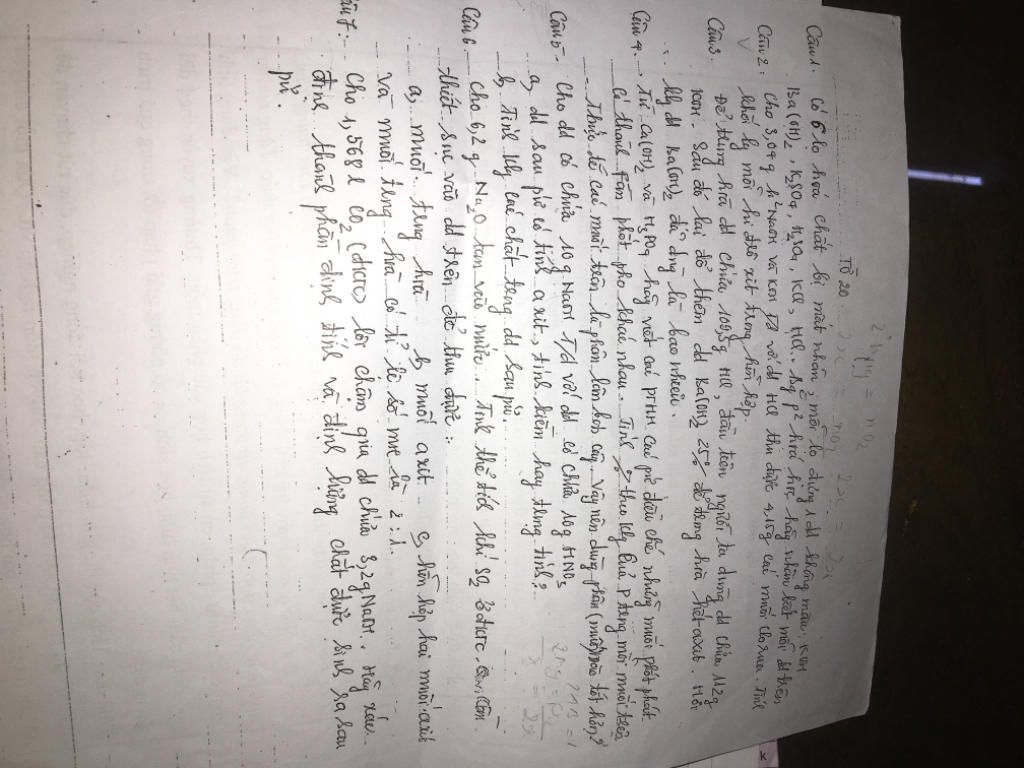 Tờ 20
Câu 1. Có 6 lọ hoá chất bị mất nhãn, mỗi lọ đựng 1 dd không màu: KOH
Ba(OH)2, K2SO4, H2SO4, KCl, HCl. Bg p² hoá học hãy nhận biết mỗi dd trên
Câu 2: Cho 3,04g h² NaOH và KOH t/d với dd HCl thu được 4,15g các muối clorua. Tính
khối lg mỗi hiđrôxit trong hỗn hợp.
Câu 3. Để trung hoà dd chứa 109,5g HCl, đầu tiên người ta dùng dd chứa 112g
KOH. Sau đó lại đổ thêm dd Ba(OH)2 25% để trung hoà hết axit. Hỏi
lg dd Ba(OH)2 đã dùng là bao nhiêu.
Câu 4. Từ Ca(OH)2 và H3PO4 hãy viết các PTHH các pứ điều chế những muối phốt phát
có thành phần phốt pho khác nhau. Tính % theo klg của P trong mỗi muối. Trên
thực tế các muối trên là phân lân bón cây. Vậy nên dùng phân (muối) nào tốt hơn?
Câu 5 - Cho dd có chứa 10g NaOH T/d với dd có chứa 10g HNO3
a, dd sau pứ có tính axit, tính kiềm hay trung tính?
b, Tính klg các chất trong dd sau pứ.
Câu 6 Cho 6,2g Na2O tan vào nước. Tính thể tích khí SO2 ở đktc cần
thiết sục vào dd trên để thu được:
a, muối trung hoà b, muối axit c, hỗn hợp hai muối axit
và muối trung hoà có tỉ lệ số mol là 2:1.
Câu 7: Cho 1,568l CO2 (đktc) lội chậm qua dd chứa 3,2g NaOH. Hãy xác
định thành phần định tính và định lượng chất được sinh ra sau
pứ.